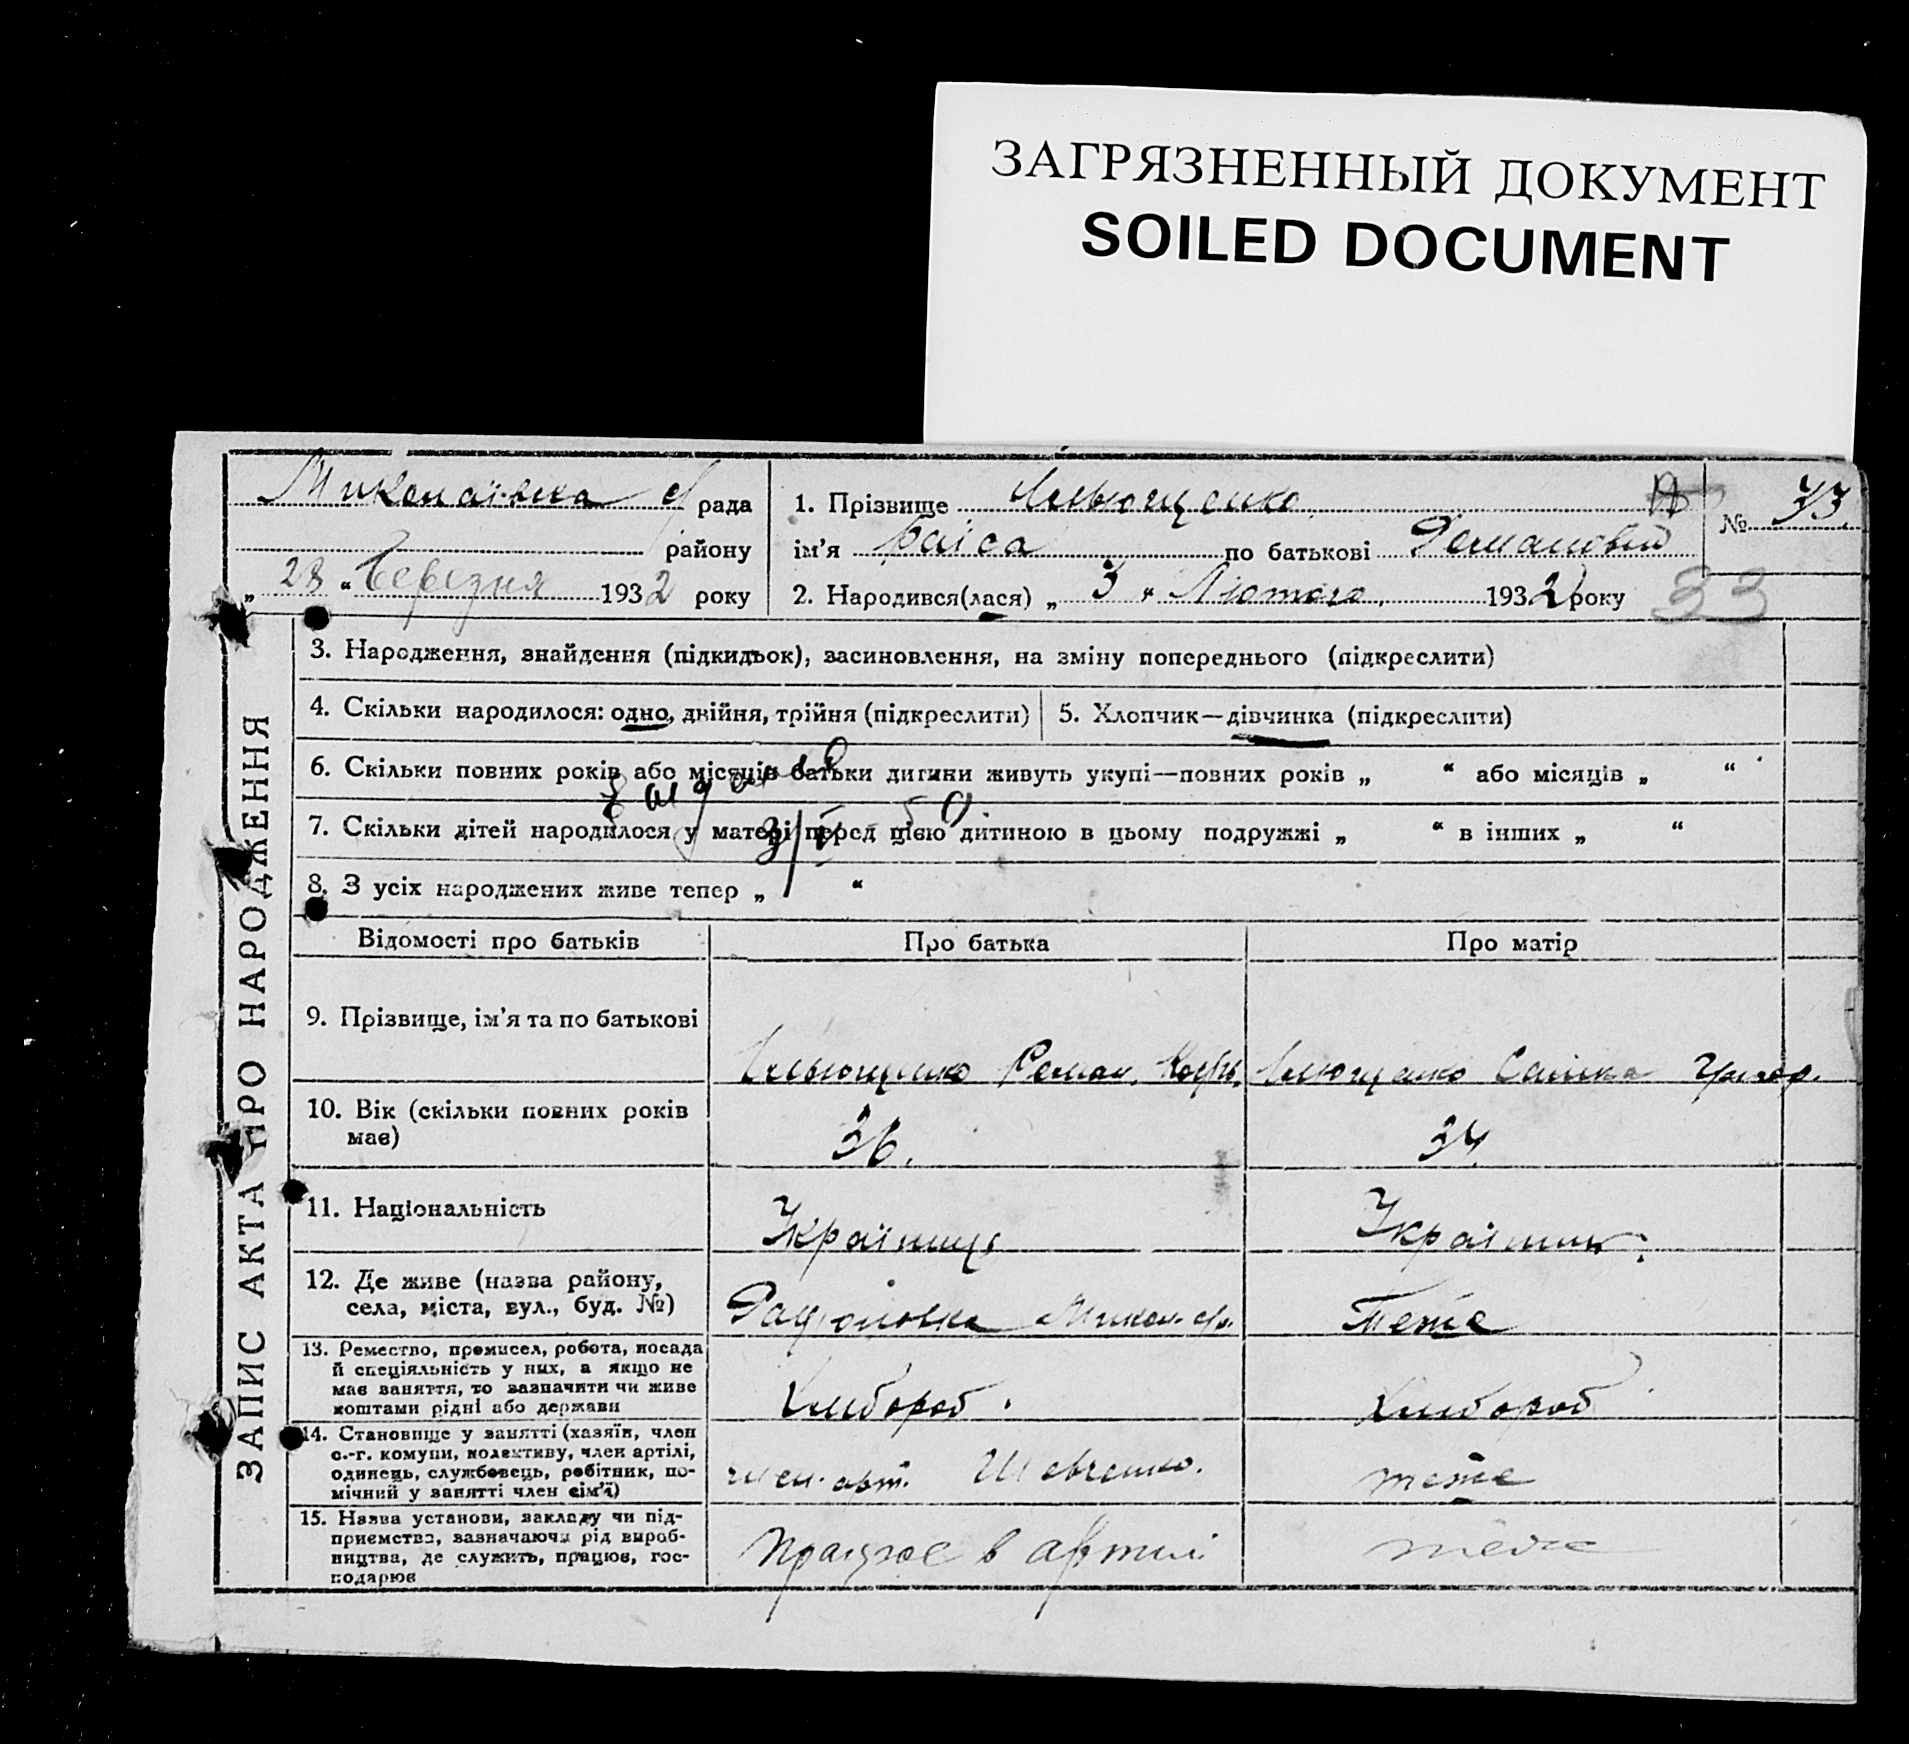 ЗАГРЯЗНЕННЫЙ ДОКУМЕНТ
SOILED DOCUMENT
Миколаївка с/рада
району
„ 28 “ Березня 1932 року
1. Прізвище Ільющенко
ім'я Раіса по батькові Романовна
2. Народився(лася) „ 3 “ Лютого 1932 року
№ 33
33
ЗАПИС АКТА ПРО НАРОДЖЕННЯ
3. Народження, знайдення (підкидьок), засиновлення, на зміну попереднього (підкреслити)
4. Скільки народилося: одно, двійня, трійня (підкреслити)
5. Хлопчик—дівчинка (підкреслити)
6. Скільки повних років або місяців батьки дитини живуть укупі—повних років „ “ або місяців „ “
7. Скільки дітей народилося у матері перед цією дитиною в цьому подружжі „ “ в інших „ “
8. З усіх народжених живе тепер „ “
Відомості про батьків
Про батька
Про матір
9. Прізвище, ім'я та по батькові
Ільющенко Роман
Ільющенко Григор.
10. Вік (скільки повних років
має)
36.
34
11. Національність
Українець
Україн
12. Де живе (назва району,
села, міста, вул., буд. №)
Микол. с/р.
Теже
13. Ремество, промисел, робота, посада
й спеціяльність у них, а якщо не
має заняття, то зазначити чи живе
коштами рідні або держави
Хлібороб.
Хлібороб
14. Становище у занятті (хазяїн, член
с.-г. комуни, колективу, член артілі,
одинець, службовець, робітник, по-
мічний у занятті член сім'ї)
член. арт. Шевченко.
теже
15. Назва установи, закладу чи під-
приємства, зазначаючи рід вироб-
ництва, де служить, працює, гос-
подарює
Працює в артилі
теже